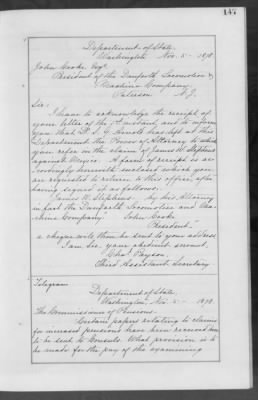 147
Department of State,
Washington Nov. 5 - 1878.
John Cooke Esqr.
President of the Danforth Locomotive &
Machine Company.
Paterson N.J.
Sir:
I have to acknowledge the receipt of
your letter of the instant, and to inform
you that F. S. G. has left at this
Department the Power of Attorney to which
you refer in the claim of James W. Stephens
against Mexico. A form of receipt is ac-
cordingly herewith enclosed which you
are requested to return to this office, after
having signed it as follows:
"James W. Stephens. by his Attorney
in fact the Danforth Locomotive and Ma-
chine Company John Cooke
President"
a cheque will then be sent to your address
I am Sir, your obedient servant,
Chas. Payson,
Third Assistant Secretary
Telegram
Department of State,
Washington, Nov. 5 - 1878.
The Commissioner of Pensions.
Certain papers relating to claims
for increased pensions have been received here
to be sent to Consuls. What provision is to
be made for the pay of the examining